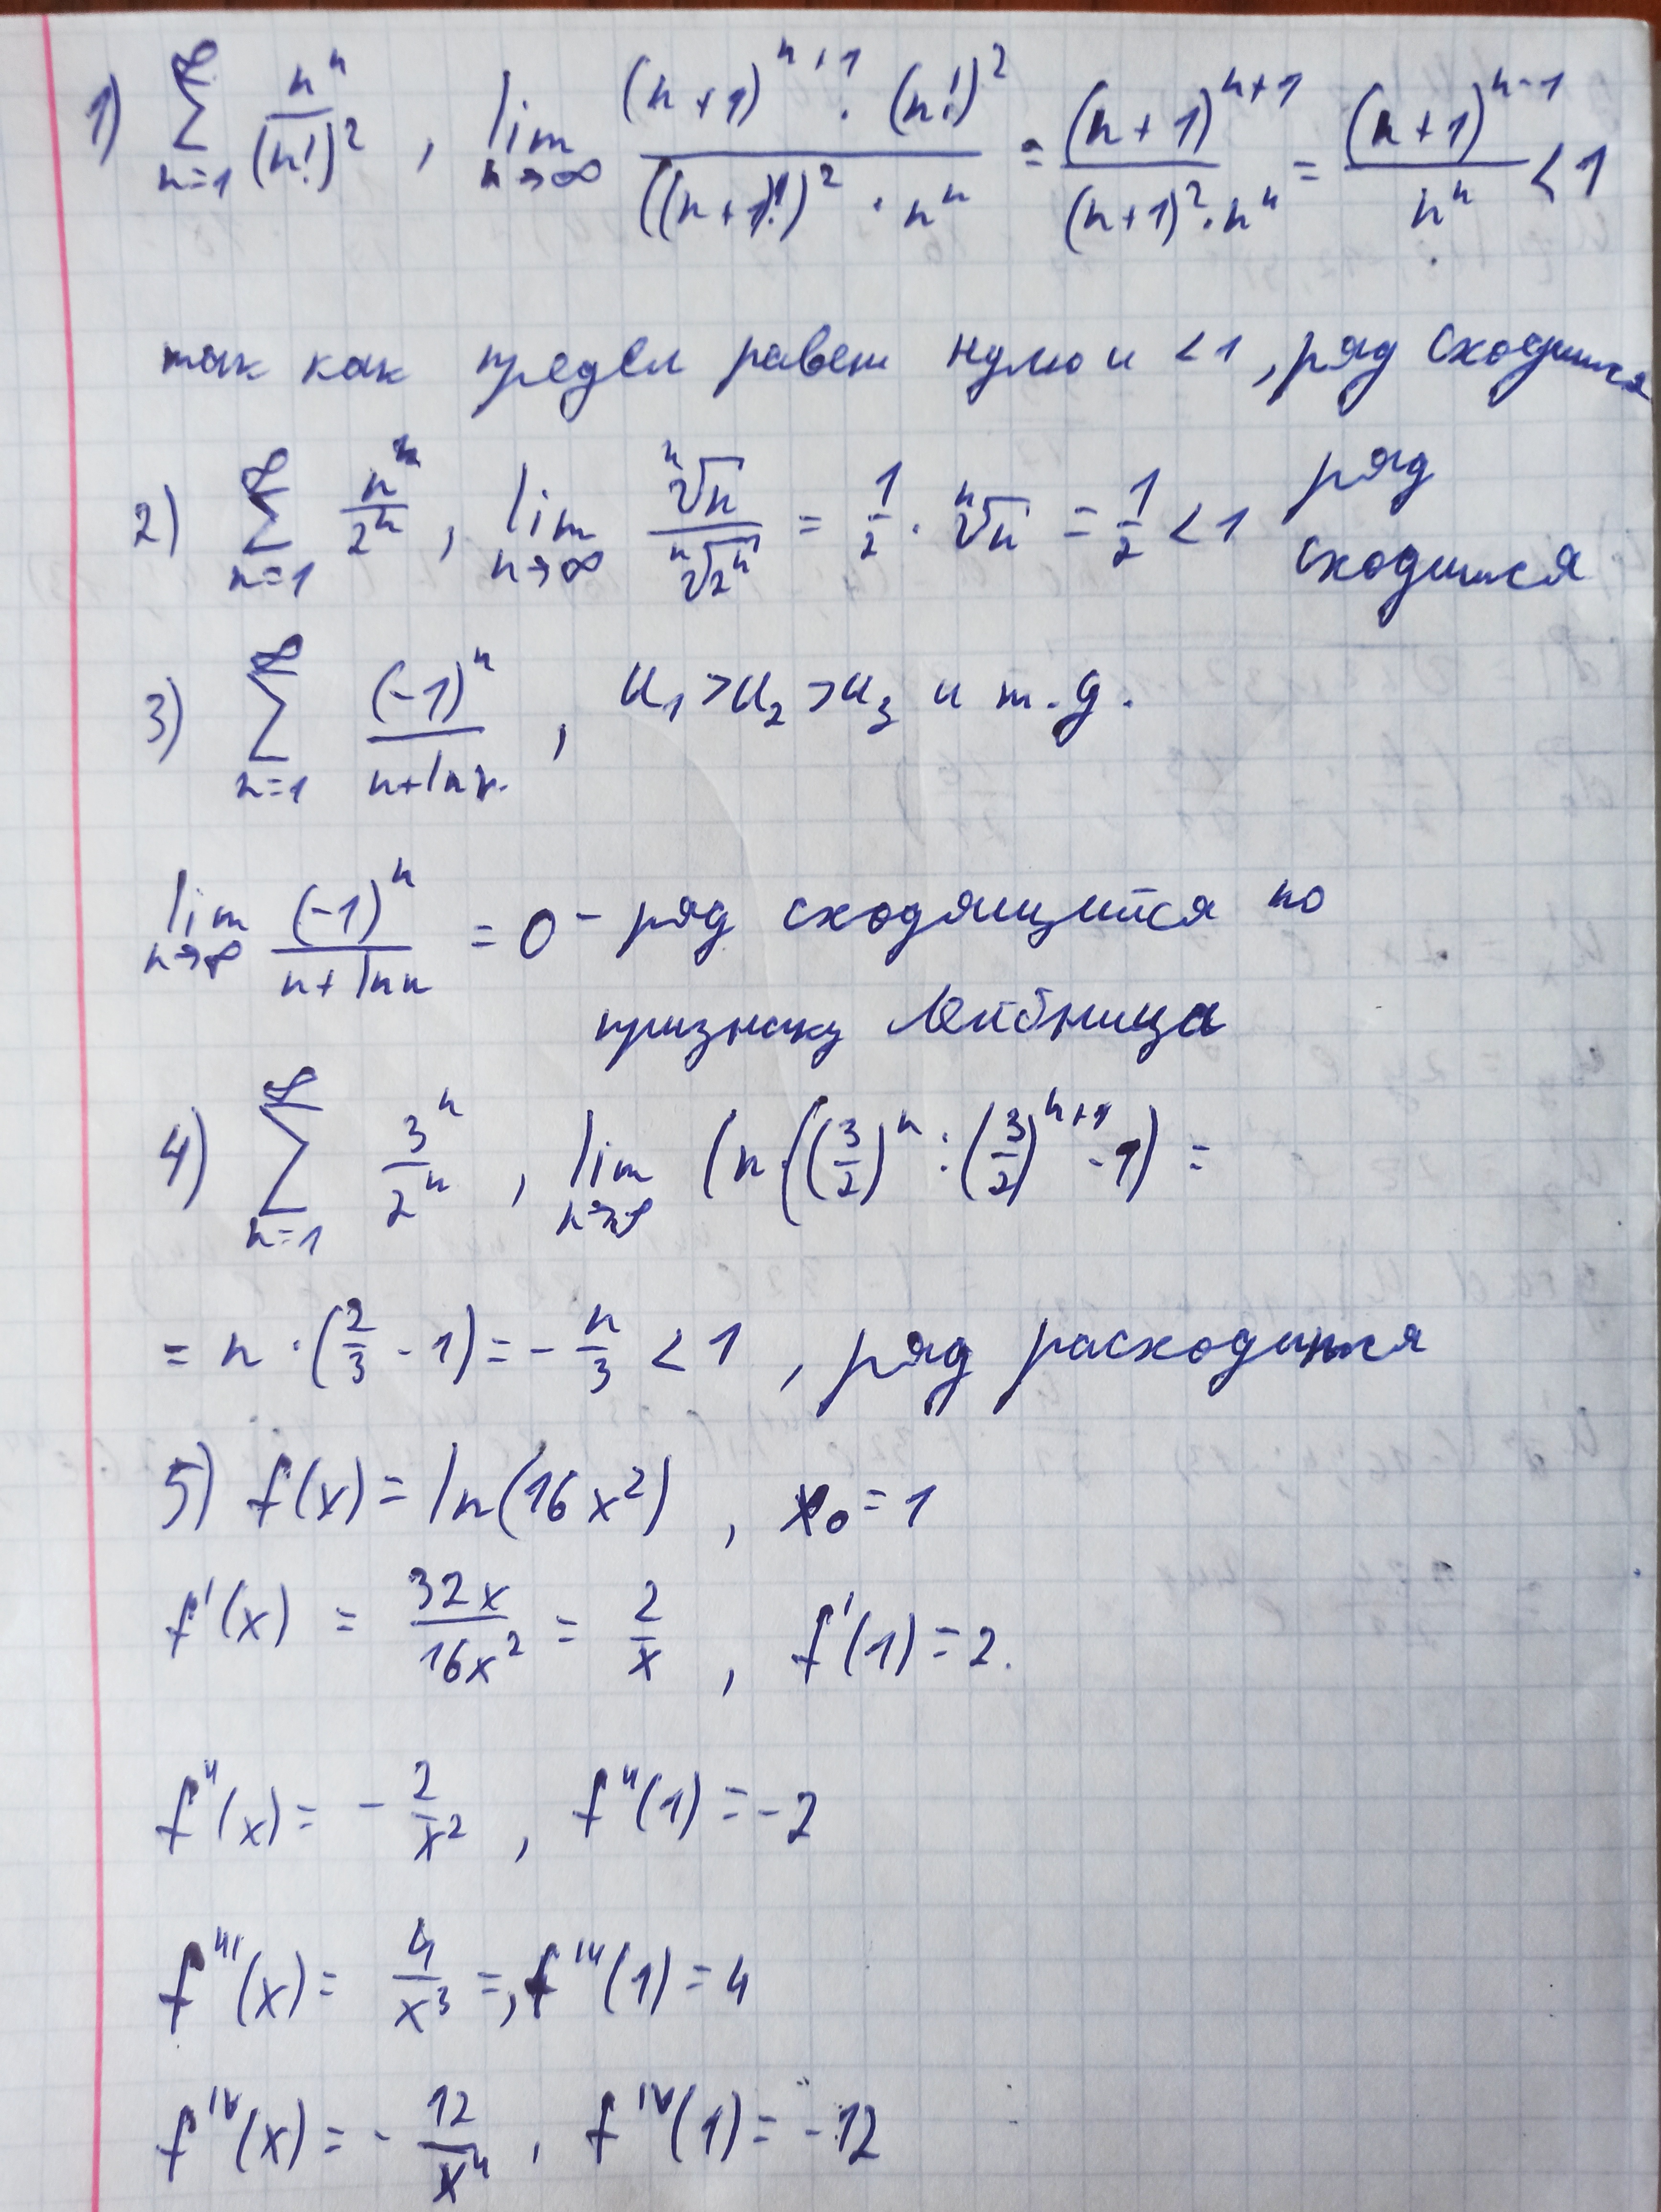 1) ∑_{n=1}^{∞} n^n/(n!)^2 , lim_{n→∞} ((n+1)^{n+1} · (n!)^2)/(((n+1)!)^2 · n^n) = (n+1)^{n+1}/((n+1)^2 · n^n) = (n+1)^{n-1}/n^n < 1
так как предел равен нулю и < 1, ряд сходится
2) ∑_{n=1}^{∞} n/2^n , lim_{n→∞} ⁿ√n/ⁿ√(2^n) = 1/2 · ⁿ√n = 1/2 < 1 ряд
сходится
3) ∑_{n=1}^{∞} (-1)^n/(n+ln n) , u₁ > u₂ > u₃ и т.д.
lim_{n→∞} (-1)^n/(n+ln n) = 0 - ряд сходящийся по
признаку Лейбница
4) ∑_{n=1}^{∞} 3^n/2^n , lim_{n→∞} (n · ((3/2)^n : (3/2)^{n+1} - 1) =
= n · (2/3 - 1) = - n/3 < 1 , ряд расходится
5) f(x) = ln(16x²) , x₀ = 1
f'(x) = 32x/16x² = 2/x , f'(1) = 2.
f''(x) = - 2/x² , f''(1) = -2
f'''(x) = 4/x³ = , f'''(1) = 4
f^{IV}(x) = - 12/x⁴ , f^{IV}(1) = -12